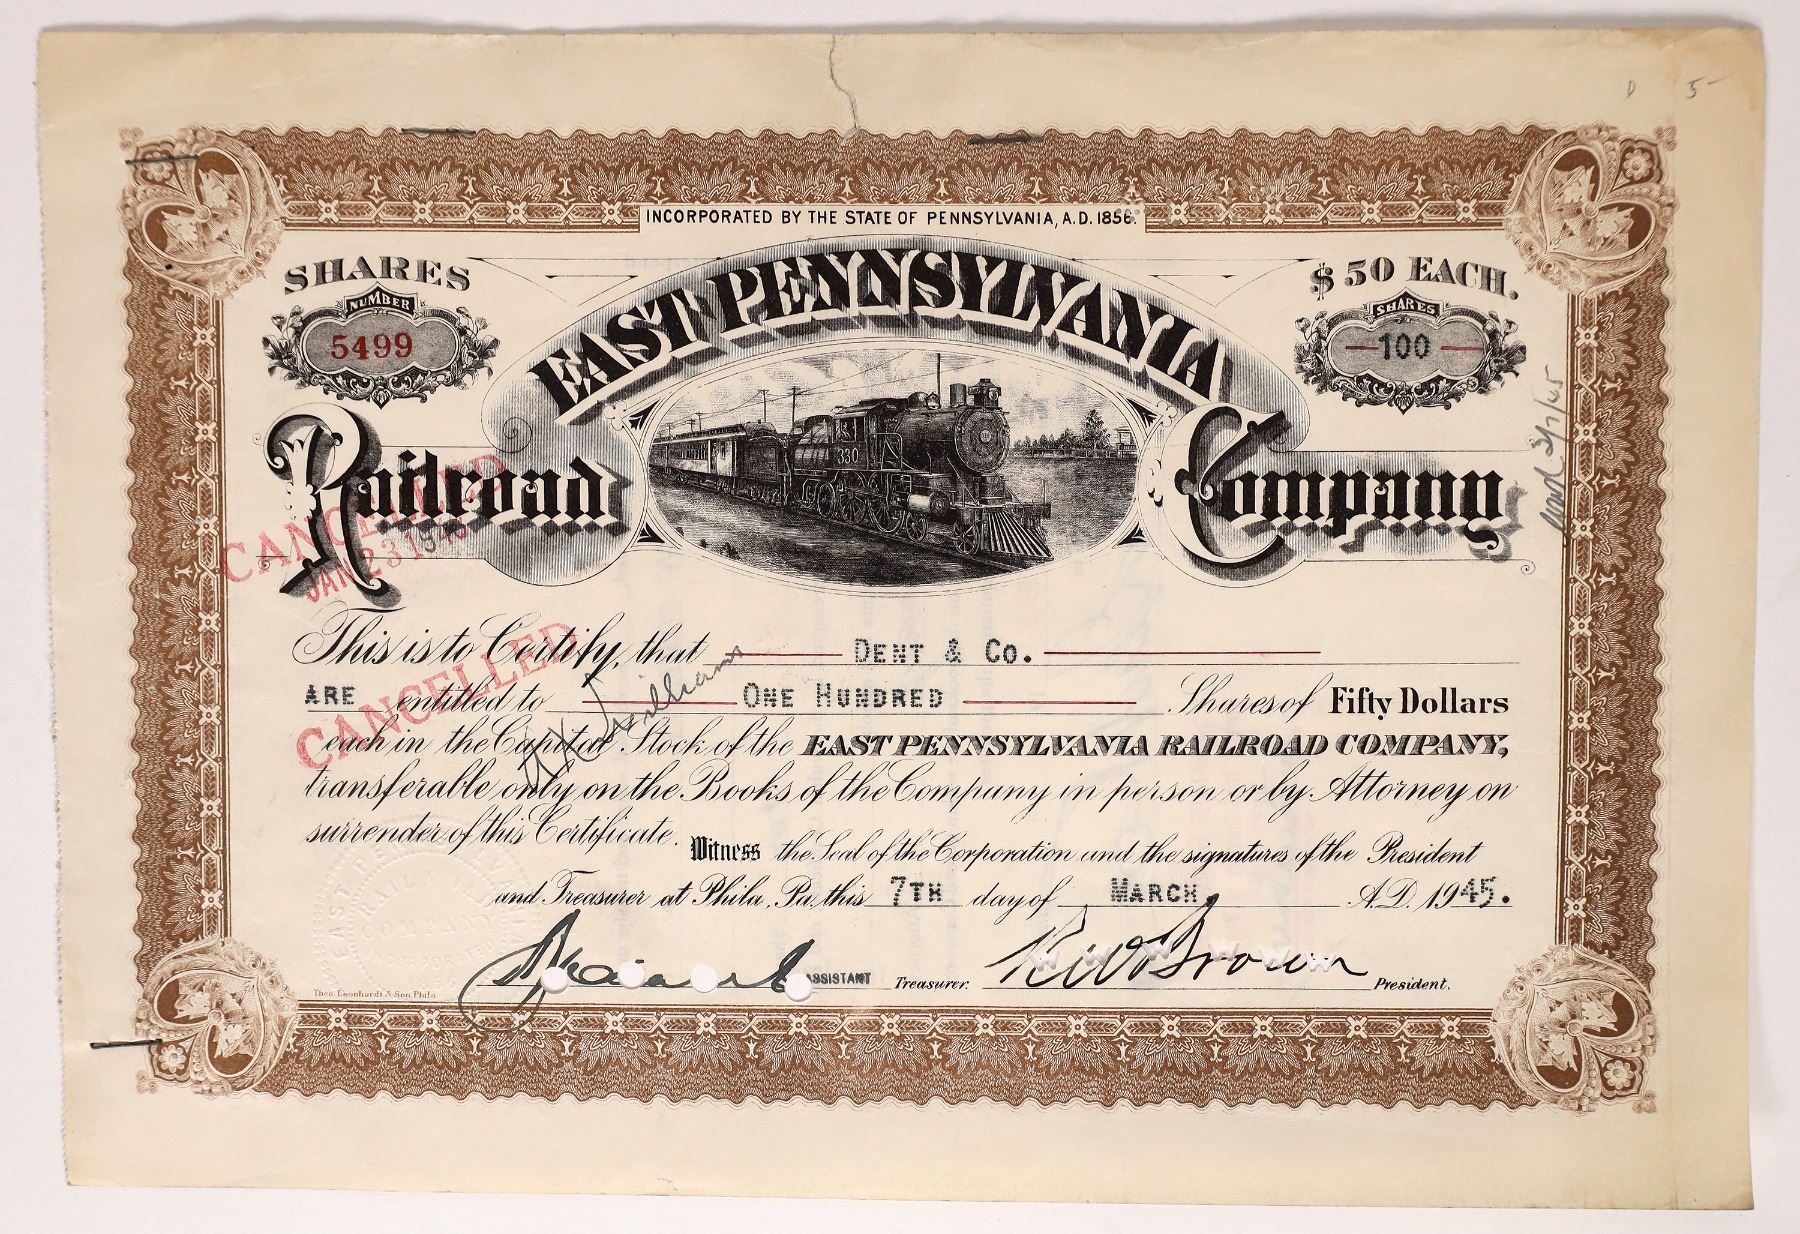 D 5-
INCORPORATED BY THE STATE OF PENNSYLVANIA, A.D. 1856.
SHARES
NUMBER
5499
$50 EACH.
SHARES
100
EAST PENNSYLVANIA
Railroad Company
330
CANCELLED
JAN 23 194
This is to Certify, that DENT & Co.
ARE entitled to ONE HUNDRED Shares of Fifty Dollars
CANCELLED
Williams
each in the Capital Stock of the EAST PENNSYLVANIA RAILROAD COMPANY,
transferable only on the Books of the Company in person or by Attorney on
surrender of this Certificate.
Witness the Seal of the Corporation and the signatures of the President
and Treasurer at Phila, Pa. this 7TH day of MARCH A.D. 1945.
EAST
RAIL
COMPANY
ASSISTANT Treasurer.
Brown President.
Theo. Leonhardt & Son Phila.